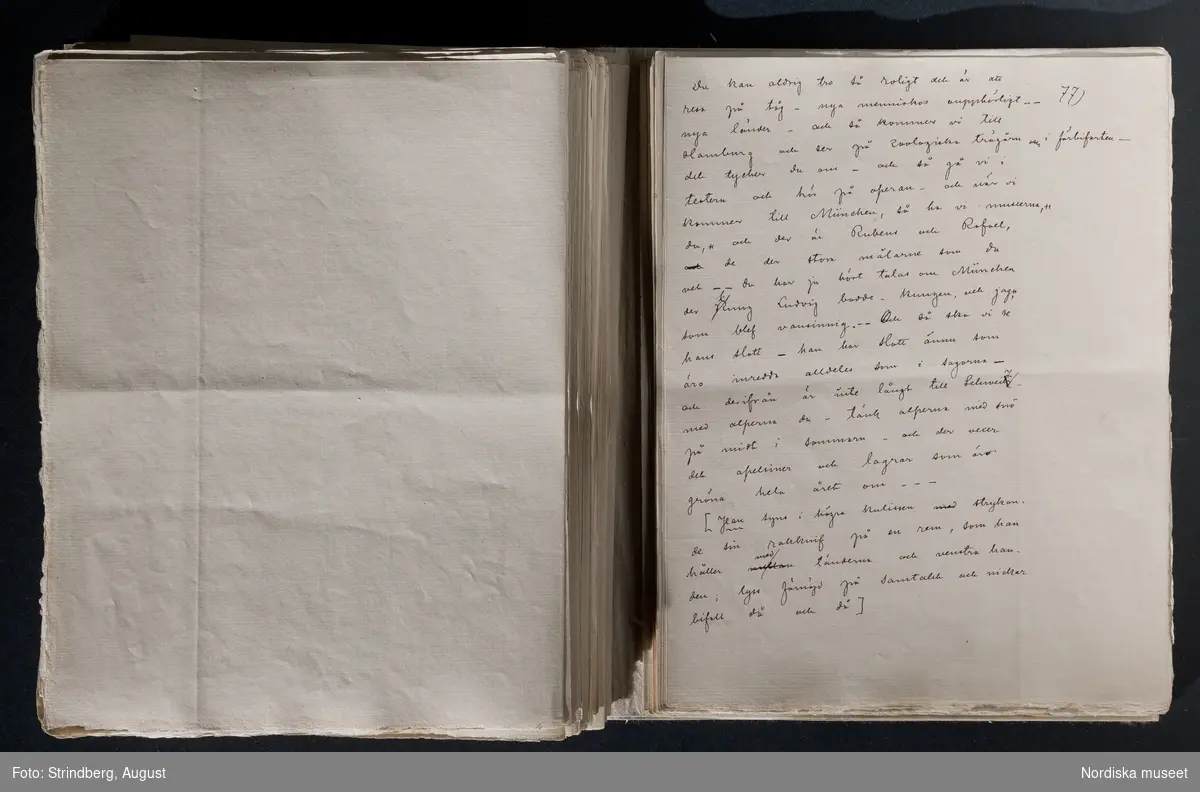 77)
Du kan aldrig tro så roligt det är att
resa på tåg – nya menniskor oupphörligt ––
nya länder – och så kommer vi till
Hamburg och ser på zoologiska trägårn i förbifarten –
det tycker du om – och så gå vi i
teatern och hör på operan – och när vi
kommer till München, så ha vi museerna,
du, och der är Rubens och Rafael,
de der stora målarne som du
vet –– Du har ju hört talas om München
der Kung Ludvig bodde – kungen, vet jag,
som blef vansinnig. –– Och så ska vi se
hans slott – han har slott ännu som
äro inredda alldeles som i sagorna –
och derifrån är inte långt till Schweiz –
med alperna du – tänk alperna med snö
på midt i sommarn – och der vexer
det apelsiner och lagrar som äro
gröna hela året om – – –
[Jean syns i högra kulissen strykan-
de sin rakknif på en rem, som han
håller med tänderna och venstra han-
den; lyss förnöjd på samtalet och nickar
bifall då och då]
Foto: Strindberg, August
Nordiska museet